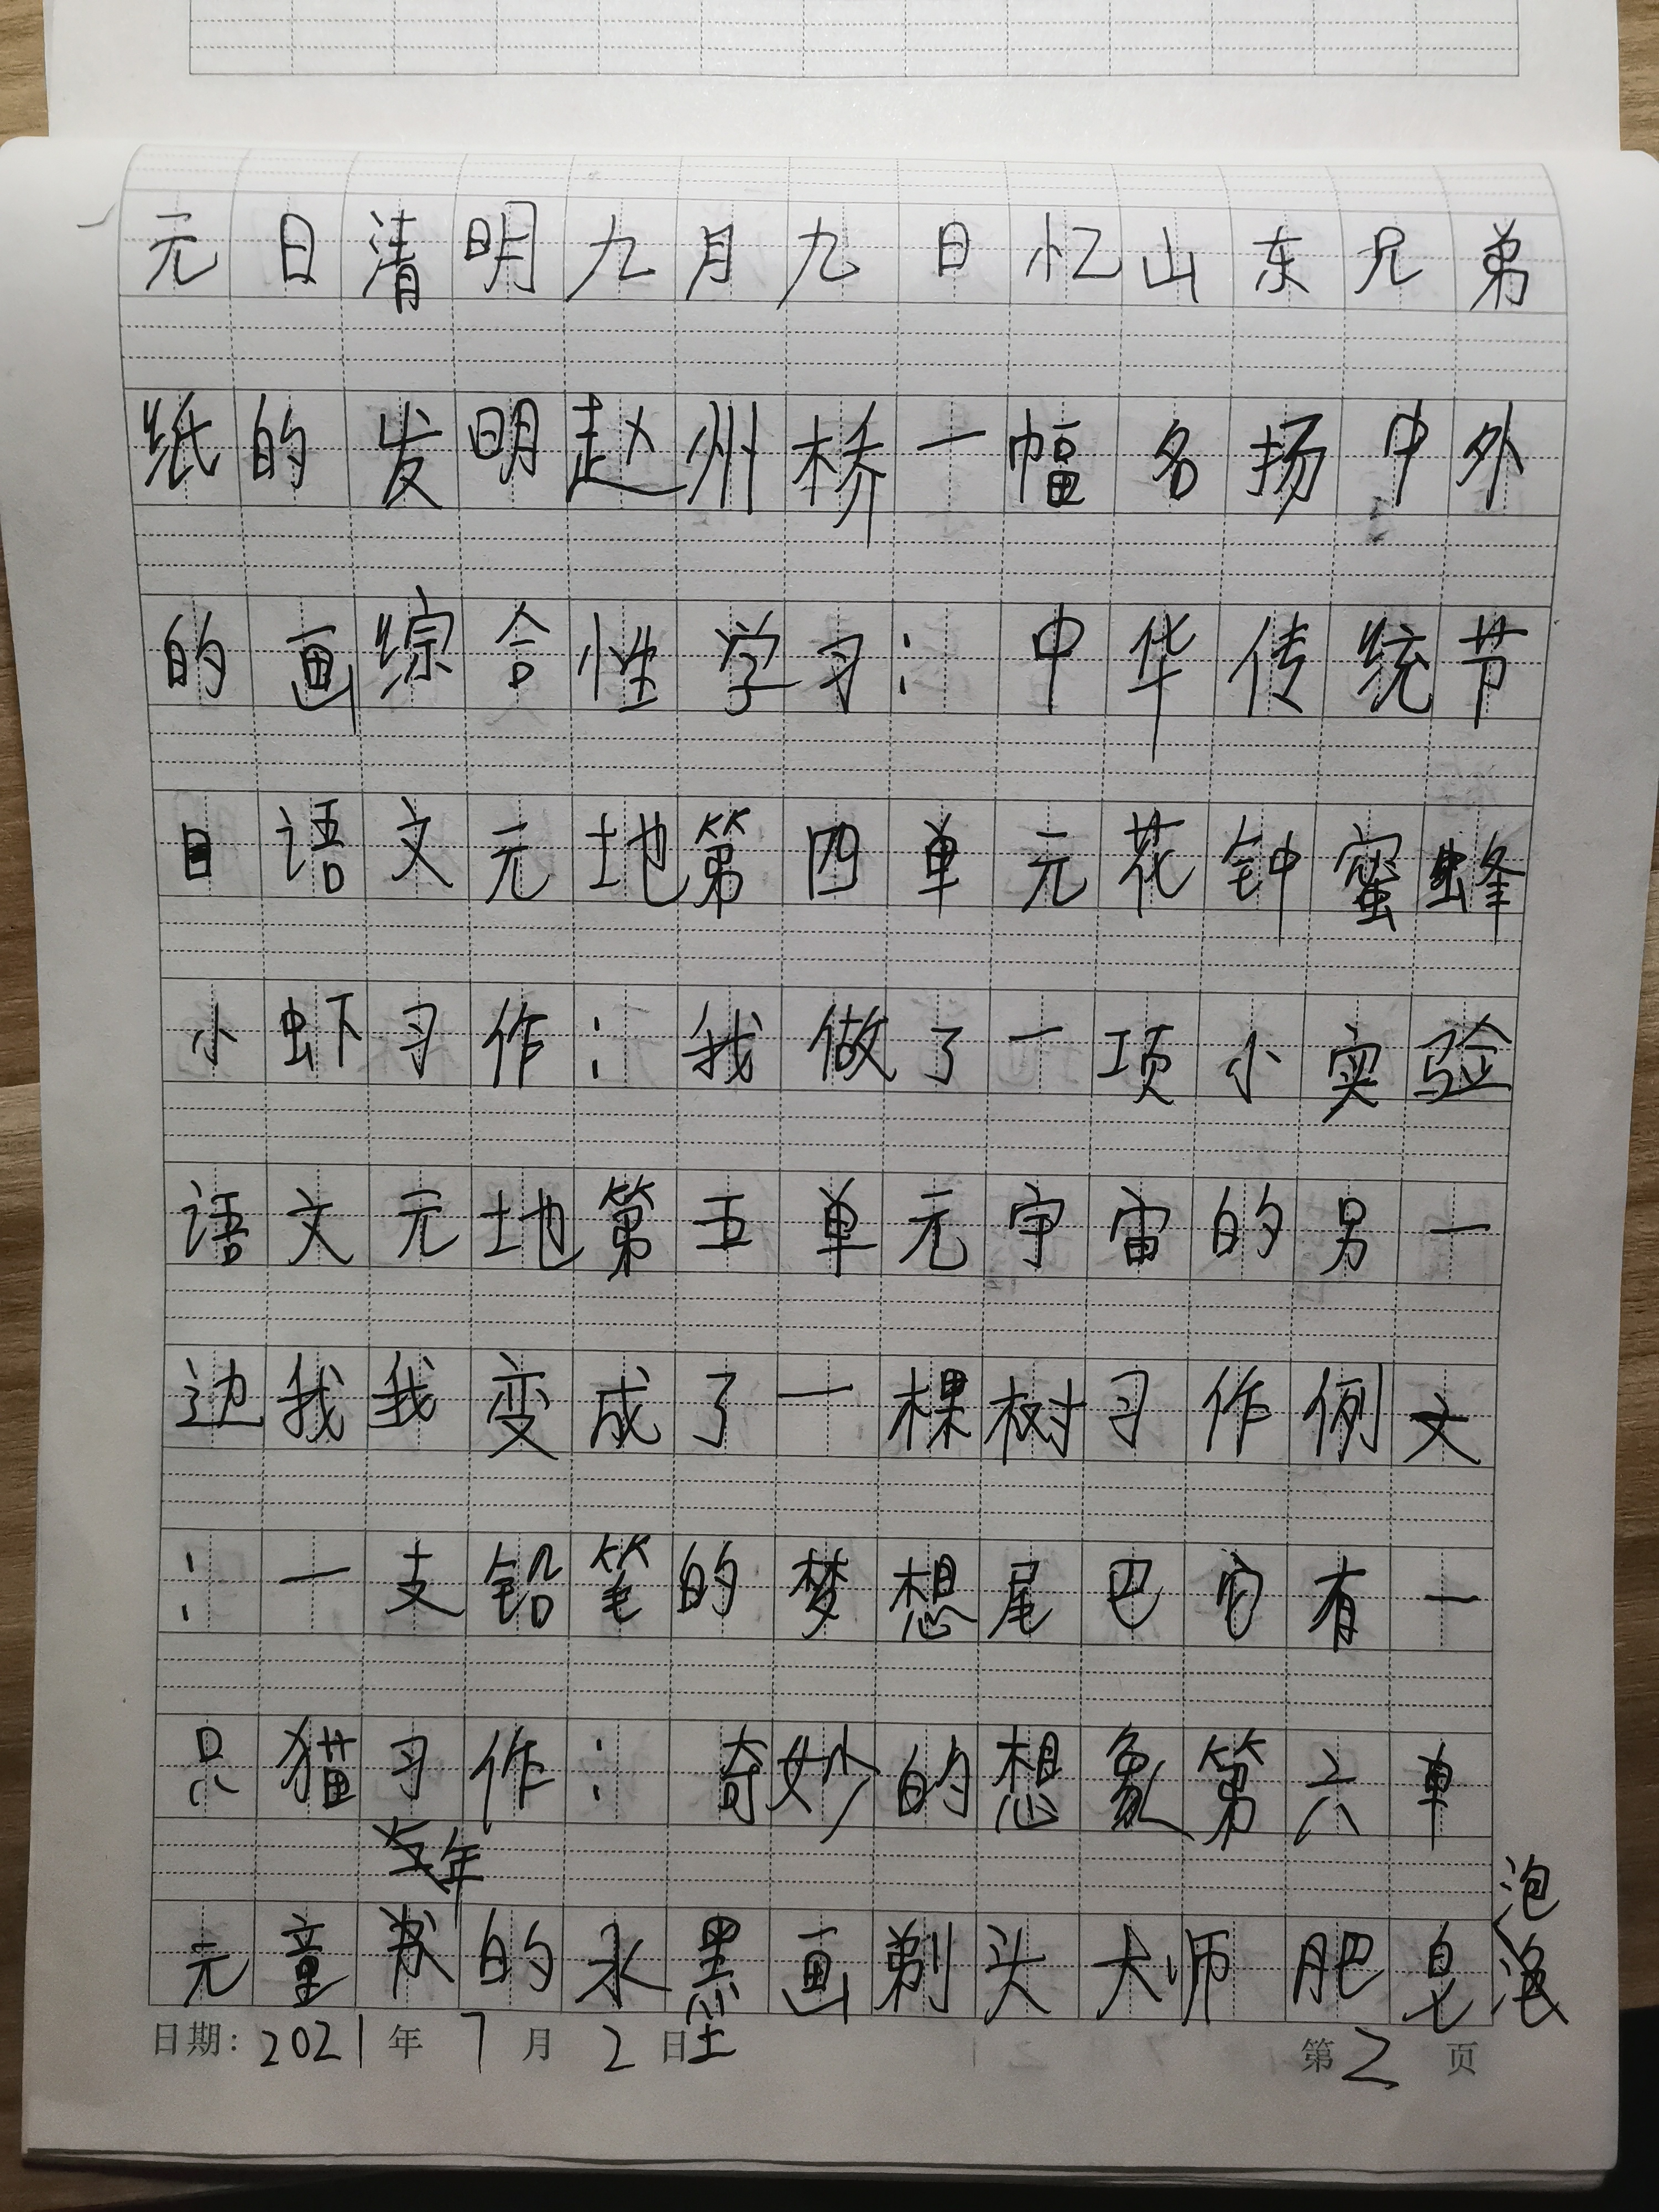 元日清明九月九日忆山东兄弟
纸的发明赵州桥一幅名扬中外
的画综合性学习：中华传统节
日语文元地第四单元花钟蜜蜂
小虾习作：我做了一项小实验
语文元地第五单元宇宙的另一
边我我变成了一棵树习作例文
：一支铅笔的梦想尾巴它有一
只猫习作：奇妙的想象第六单
当年
元童的水墨画剃头大师肥皂泡泡
日期：2021年7月2日
第2页